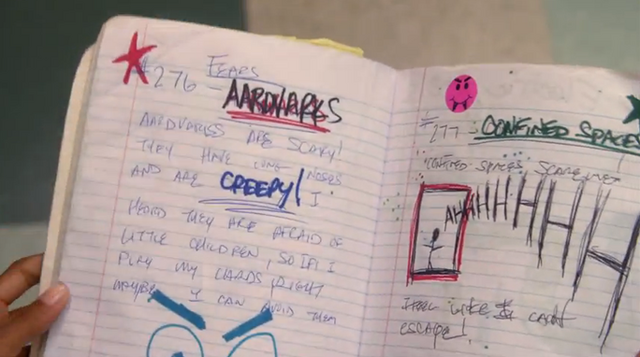 FEARS
#276 - AARDVARKS
AARDVARKS ARE SCARY!
THEY HAVE LONG NOSES
AND ARE CREEPY! I
HEARD THEY ARE AFRAID OF
LITTLE CHILDREN, SO IF I
PLAY MY CARDS RIGHT
MAYBE I CAN AVOID THEM
#277 - CONFINED SPACES
CONFINED SPACES SCARE ME!
AHHHHHHH
I FEEL LIKE I CANT
ESCAPE!